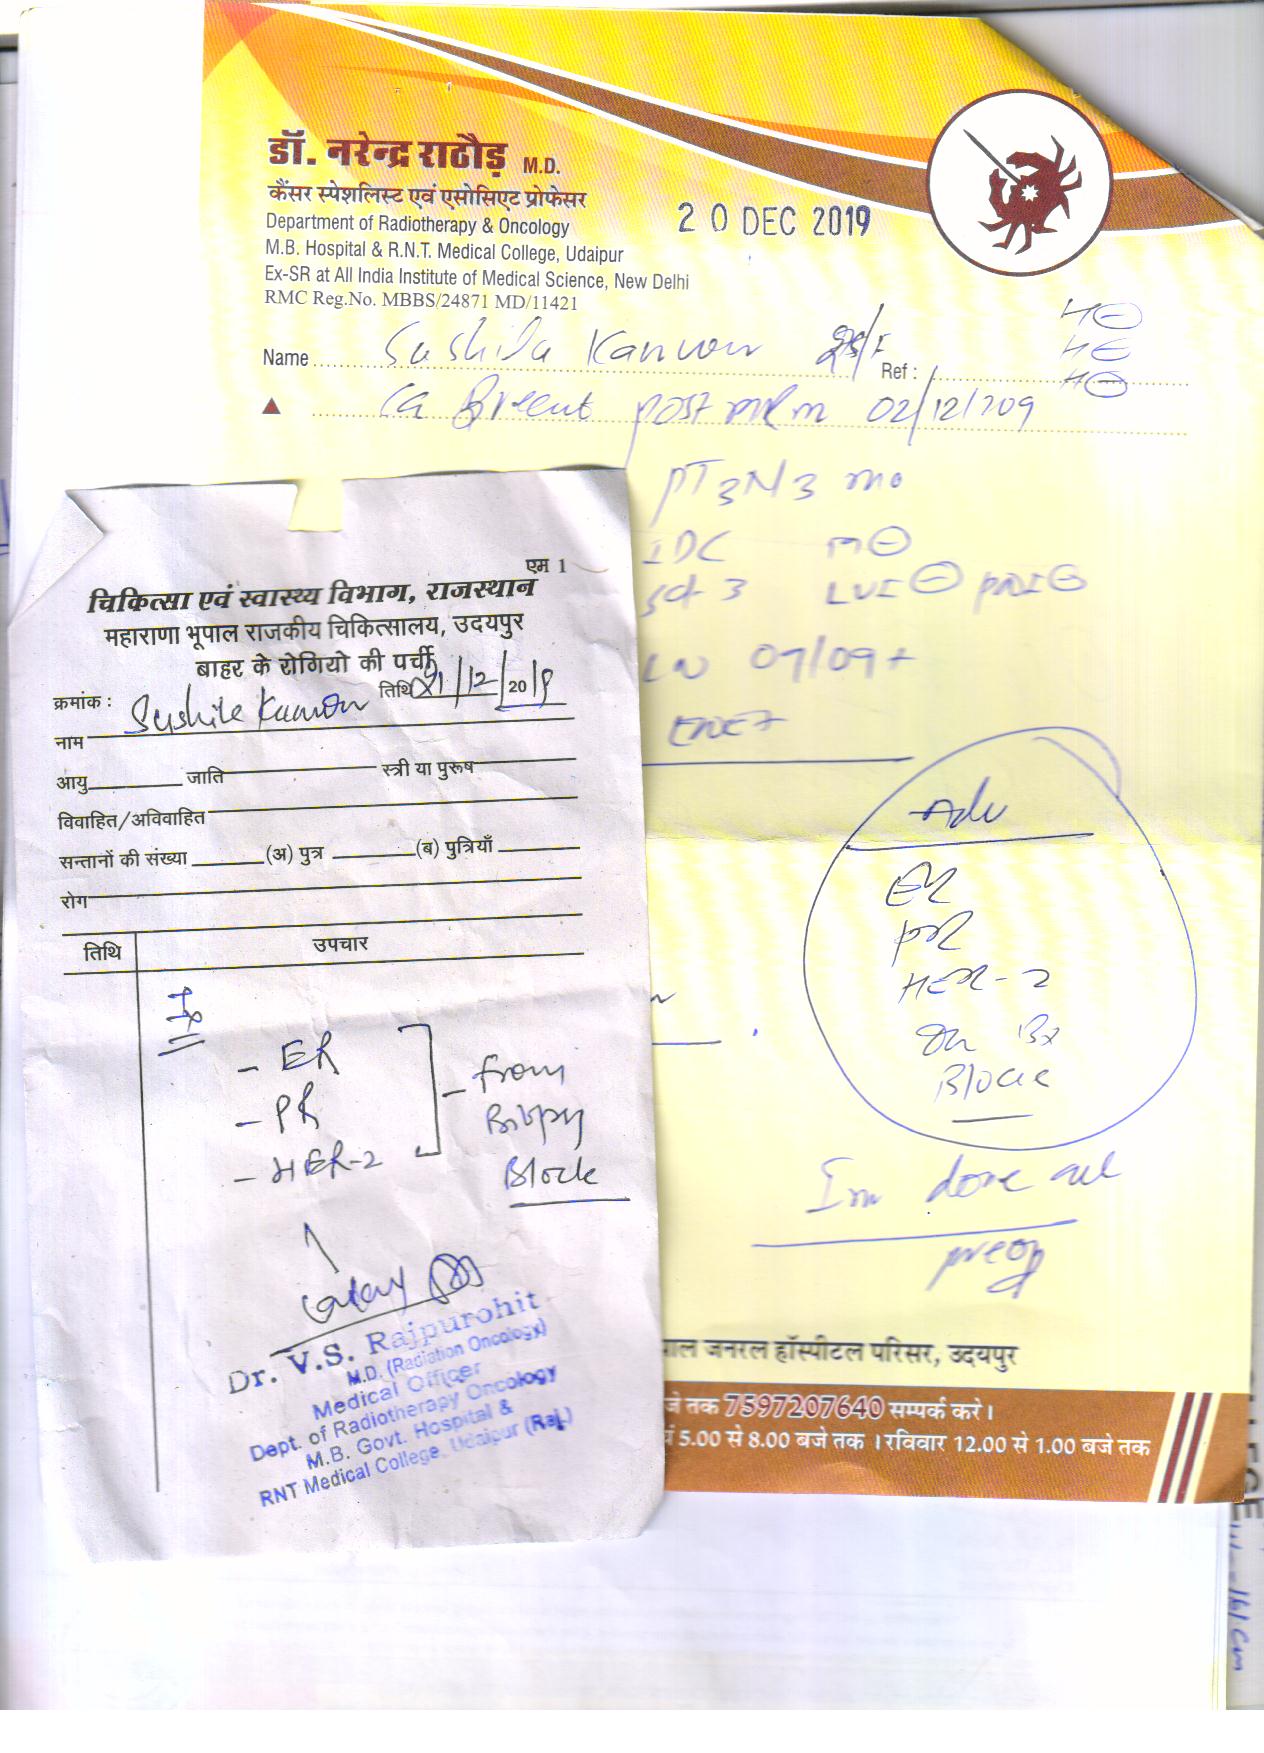 डॉ. नरेन्द्र राठौड़ M.D.
कैंसर स्पेशलिस्ट एवं एसोसिएट प्रोफेसर
Department of Radiotherapy & Oncology
M.B. Hospital & R.N.T. Medical College, Udaipur
Ex-SR at All India Institute of Medical Science, New Delhi
RMC Reg.No. MBBS/24871 MD/11421
20 DEC 2019
Name Sushila Kanwar
Ref :
Ca Breast post MRM 02/12/209
PT3N3 M0
IDC
LVI ⊖ PNI ⊖
LN 07/09+
Adv
ER
PR
HER-2
on Bx
Block
done
preop
पाल जनरल हॉस्पीटल परिसर, उदयपुर
जे तक 7597207640 सम्पर्क करे।
5.00 से 8.00 बजे तक । रविवार 12.00 से 1.00 बजे तक
एम 1
चिकित्सा एवं स्वास्थ्य विभाग, राजस्थान
महाराणा भूपाल राजकीय चिकित्सालय, उदयपुर
बाहर के रोगियो की पर्ची
क्रमांक : तिथि 21/12/2019
नाम Sushila Kanwar
आयु जाति स्त्री या पुरूष
विवाहित/अविवाहित
सन्तानों की संख्या (अ) पुत्र (ब) पुत्रियाँ
रोग
तिथि उपचार
- ER
- PR
- HER-2
- from
Biopsy
Block
Dr. V.S. Rajpurohit
M.D. (Radiation Oncology)
Medical Officer
Dept. of Radiotherapy Oncology
M.B. Govt. Hospital &
RNT Medical College, Udaipur (Raj.)